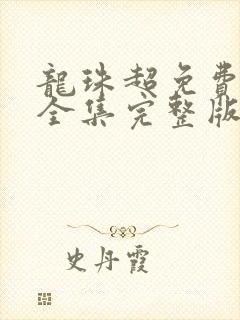 龍珠超免費
全集完整版
史丹霞